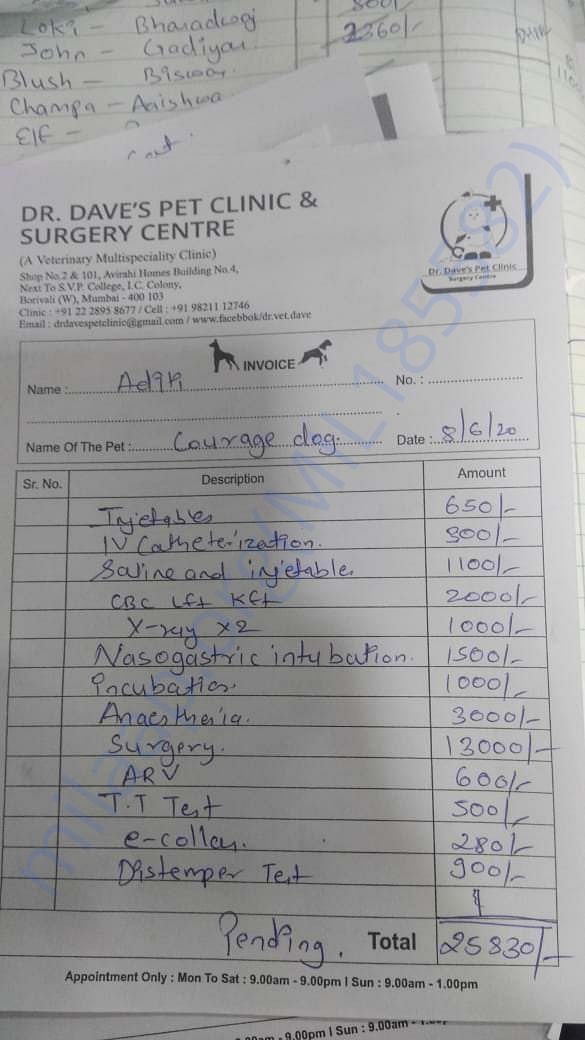 Loki - Bharadwaj 800/-
John - Gadiyar 2360/-
Blush - Biswas
Champa - Aaishwa
Elf -
DR. DAVE'S PET CLINIC &
SURGERY CENTRE
(A Veterinary Multispeciality Clinic)
Shop No.2 & 101, Avirahi Homes Building No.4,
Next To S.V.P. College, I.C. Colony,
Borivali (W), Mumbai - 400 103
Clinic : +91 22 2895 8677 / Cell : +91 98211 12746
Email : drdavespetclinic@gmail.com / www.facebbok/dr.vet.dave
Dr. Dave's Pet Clinic
Surgery Centre
INVOICE
Name : Aditi No. :
Name Of The Pet : Courage dog. Date : 8/6/20
Sr. No. Description Amount
Injetables 650/-
IV Catheterization. 300/-
Saline and injetable 1100/-
CBC Lft Kft 2000/-
X-ray x2 1000/-
Nasogastric intubation. 1500/-
incubation. 1000/-
Anaesthesia. 3000/-
Surgery. 13000/-
ARV 600/-
T.T Test 500/-
e-collar. 280/-
Distemper Test 900/-
Pending. Total 25830/-
Appointment Only : Mon To Sat : 9.00am - 9.00pm I Sun : 9.00am - 1.00pm
- 9.00pm I Sun : 9.00am -